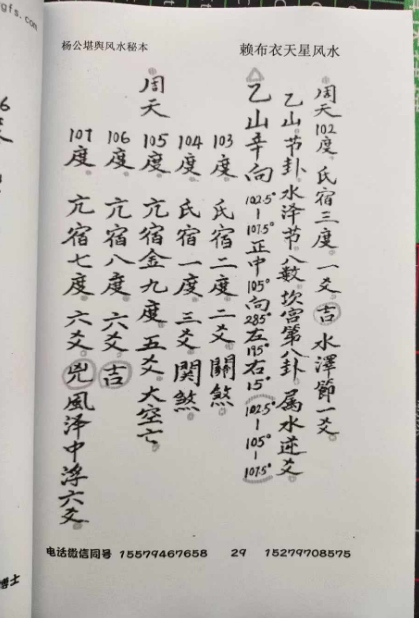 gfs.com
杨公堪舆风水秘本
赖布衣天星风水
周天102度、氐宿三度 一爻 吉 水澤節一爻
乙山节卦、水泽节、八数 坎宫第八卦 属水 进爻
乙山辛向 102.5°-107.5° 正中105° 向285° 左195° 右15° (102.5°-105°-107.5°)
103度 氐宿二度 二爻 關煞
104度 氐宿一度 三爻 関煞
周天105度 亢宿金九度 五爻 大空亡
106度 亢宿八度 六爻 吉
107度 亢宿七度 六爻 兇 風泽中浮六爻
电话微信同号 15579467658 29 15279708575
博士